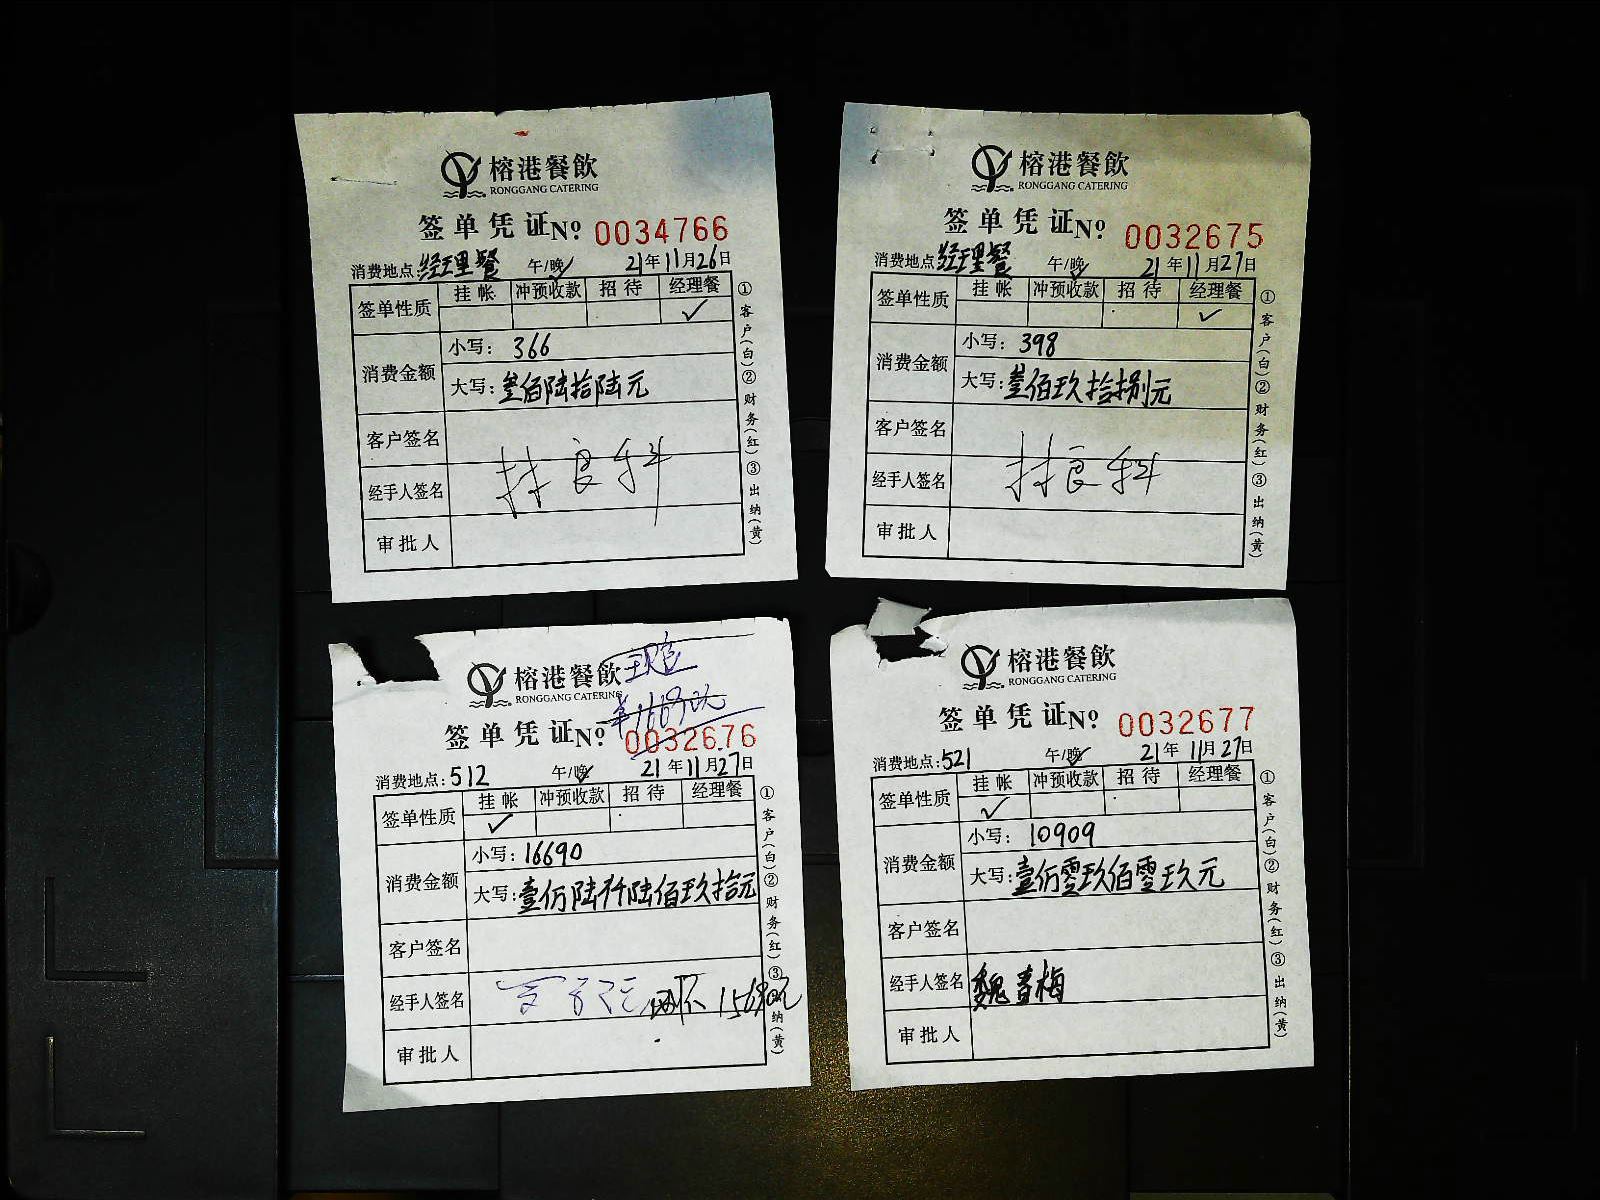 榕港餐飲
RONGGANG CATERING
签单凭证№ 0034766
消费地点:经理餐 午/晚✓ 21年11月26日
签单性质 挂帐 冲预收款 招待 经理餐
✓
消费金额 小写: 366
大写: 叁佰陆拾陆元
客户签名
经手人签名 林良科
审批人
①客户(白)②财务(红)③出纳(黄)
榕港餐飲
RONGGANG CATERING
签单凭证№ 0032675
消费地点:经理餐 午/晚✓ 21年11月27日
签单性质 挂帐 冲预收款 招待 经理餐
✓
消费金额 小写: 398
大写: 叁佰玖拾捌元
客户签名
经手人签名 林良科
审批人
①客户(白)②财务(红)③出纳(黄)
榕港餐飲
RONGGANG CATERING
¥16690元
签单凭证№ 0032676
消费地点:512 午/晚✓ 21年11月27日
签单性质 挂帐 冲预收款 招待 经理餐
✓
消费金额 小写: 16690
大写: 壹万陆仟陆佰玖拾元
客户签名
经手人签名
审批人
①客户(白)②财务(红)③出纳(黄)
榕港餐飲
RONGGANG CATERING
签单凭证№ 0032677
消费地点:521 午/晚✓ 21年11月27日
签单性质 挂帐 冲预收款 招待 经理餐
✓
消费金额 小写: 10909
大写: 壹万零玖佰零玖元
客户签名
经手人签名 魏青梅
审批人
①客户(白)②财务(红)③出纳(黄)